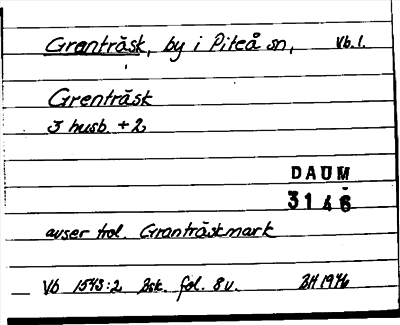 Granträsk, by i Piteå sn, Vb. l.
Grenträsk
3 husb. + 2
DAUM
3146
avser trol. Granträskmark
Vb 1543:2 Bsk. fol. 8v. BH 1976